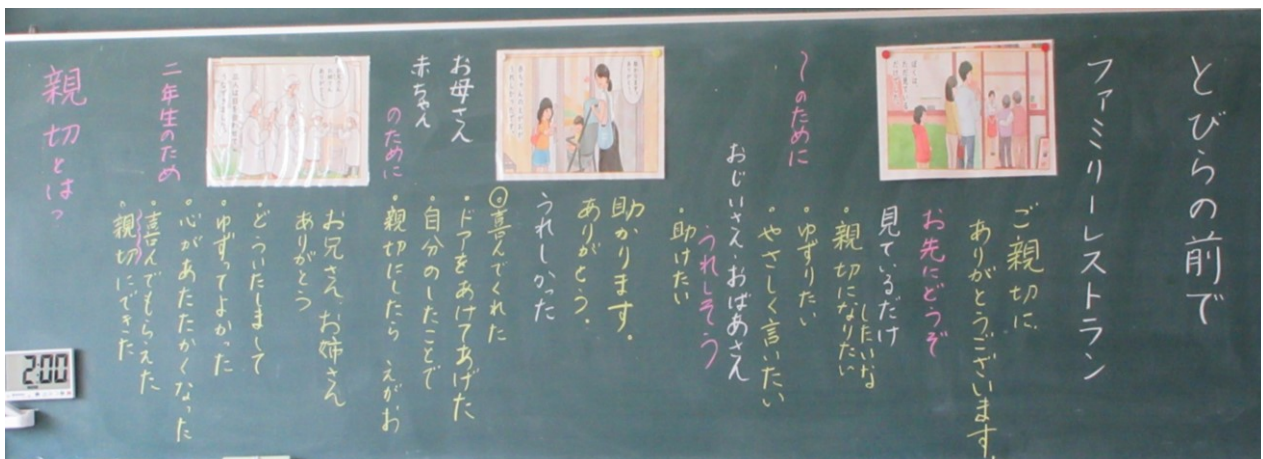 とびらの前で
ファミリーレストラン
ご親切に
ありがとうございます。
お先にどうぞ
見ているだけ
・親切になりたい
したいな
・ゆずりたい
・やさしく言いたい
〜のために
おじいさん・おばあさん
うれしそう
・助けたい
助かります。
ありがとう。
うれしかった
◎喜んでくれた
・ドアをあけてあげた
・自分のしたことで
・親切にしたら えがお
お母さん
赤ちゃん
のために
お兄さん、お姉さん
ありがとう
・どういたしまして
・ゆずってよかった
・心があたたかくなった
・喜んでもらえた
・親切にできた
二年生のため
親切とは?
2:00